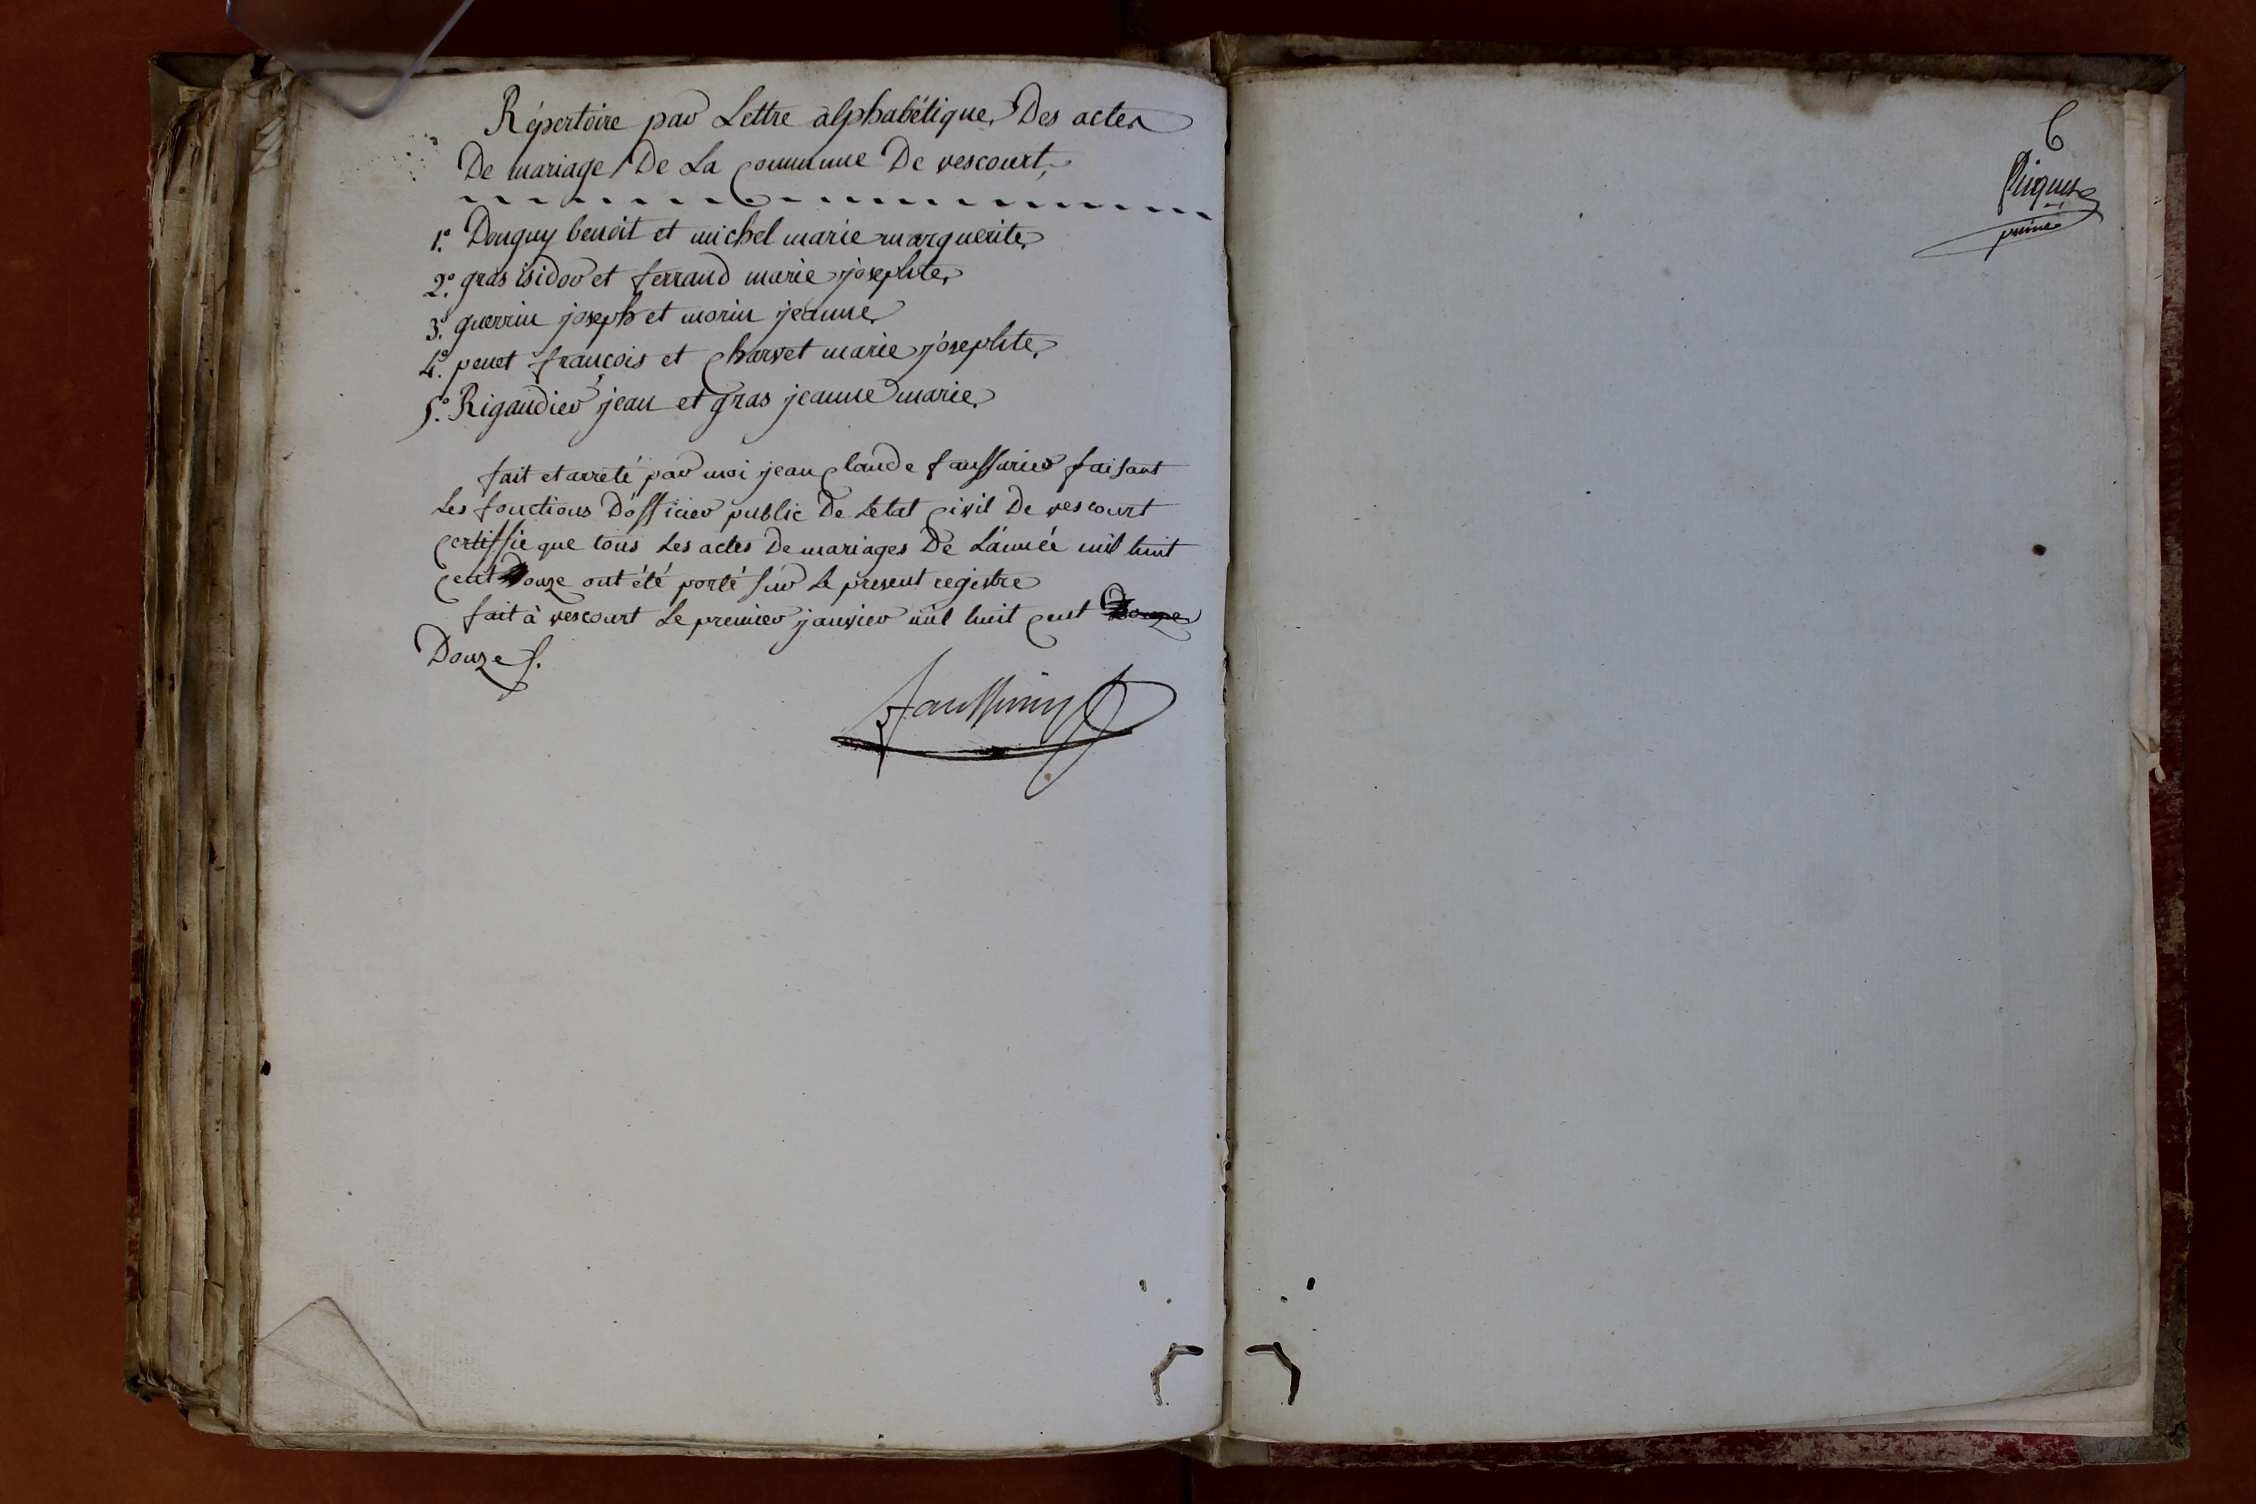 Répertoire par Lettre alphabétique Des actes
De mariage De La Commune De vescourt
1.º Douguy benoit et michel marie marguerite
2.º gras isidor et ferrand marie josephte
3.º guerrin joseph et morin jeanne
4.º penet françois et Charvet marie josephte
5.º Rigaudier jean et gras jeanne marie
fait et arreté par moi jean Claude faussurier faisant
Les fonctions D'officier public De Letat Civil De vescourt
Certiffie que tous Les actes De mariages De L'année mil huit
Cent Douze ont été porté sur Le present registre
fait à vescourt Le premier janvier mil huit Cent Douze
Douze
6